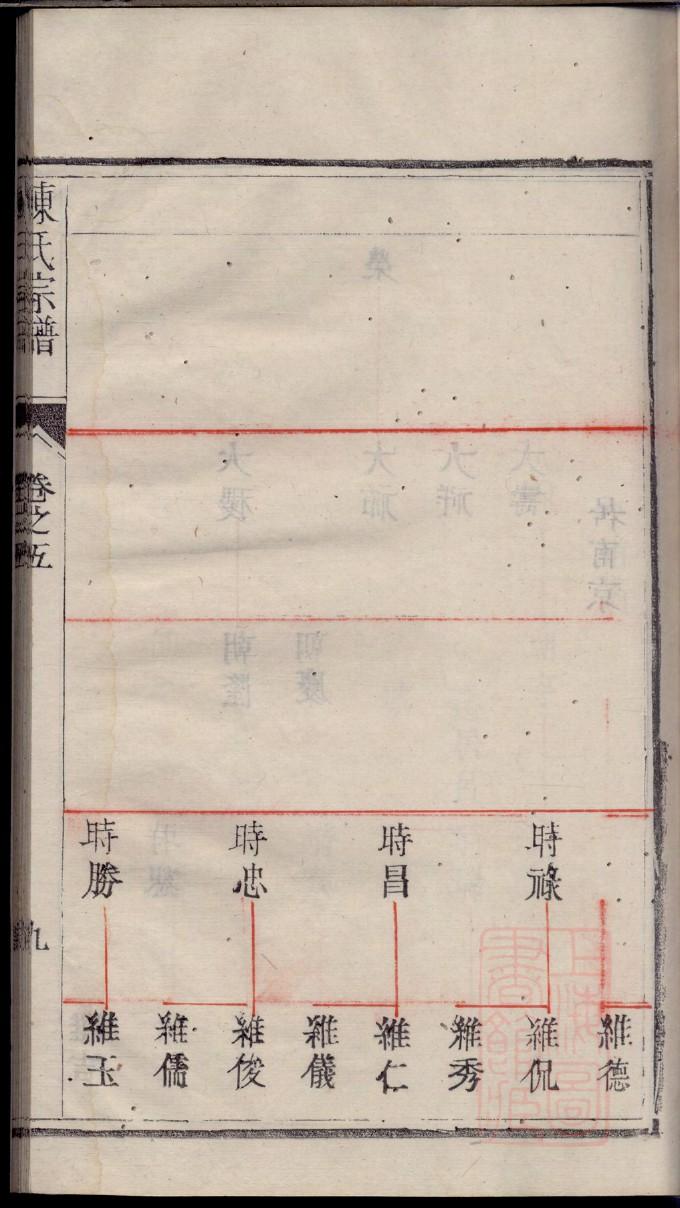 時祿
時昌
時忠
時勝
維德
維侃
維秀
維仁
維儀
維俊
維儒
維玉
陳氏宗譜
卷之五
九